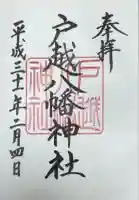 奉拝
戸越八幡神社
平成三十一年二月四日